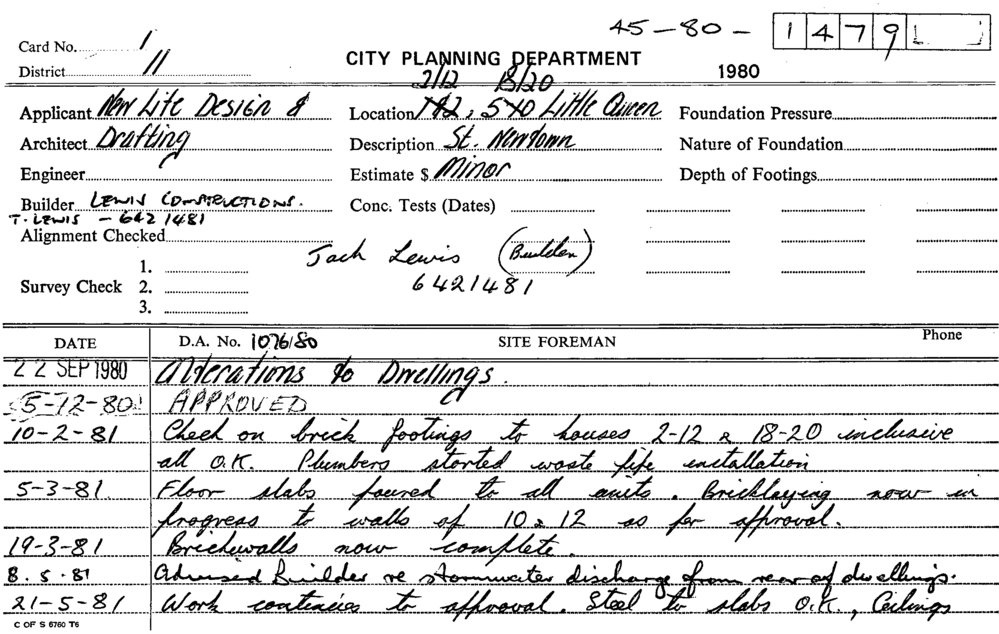 45-80- 1479
Card No. 1
CITY PLANNING DEPARTMENT
District 11
1980
2/12 18/20
Applicant New Life Design &
Location 1&2, 5 Little Queen
Foundation Pressure
Architect Drafting
Description St. Newtown
Nature of Foundation
Engineer
Estimate $ Minor
Depth of Footings
Builder LEWIS CONSTRUCTIONS.
Conc. Tests (Dates)
T. LEWIS - 642 1481
Alignment Checked
Jack Lewis (Builder)
1.
Survey Check 2.
6421481
3.
DATE D.A. No. 1076/80 SITE FOREMAN Phone
22 SEP 1980 Alterations to Dwellings.
5-12-80 APPROVED
10-2-81 Check on brick footings to houses 2-12 & 18-20 inclusive
all O.K. Plumbers started waste pipe installation
5-3-81. Floor slabs poured to all units. Bricklaying now in
progress to walls of 10 & 12 as per approval.
19-3-81 Brickwalls now complete.
8.5.81 Advised Builder re stormwater discharge from rear of dwellings.
21-5-81 Work continues to approval. Steel to slabs O.K., Ceilings
C OF S 6760 T6